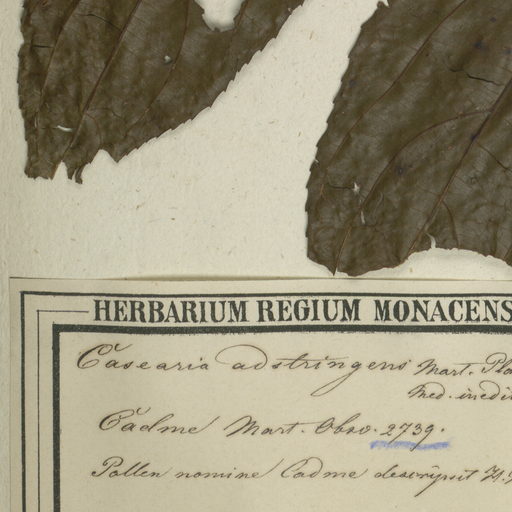 HERBARIUM REGIUM MONACENS
Casearia adstringens Mart. Pla
Med. inedit
Cadme Mart. Obso. 2739.
Pollen nomine Cadme descripsit H.